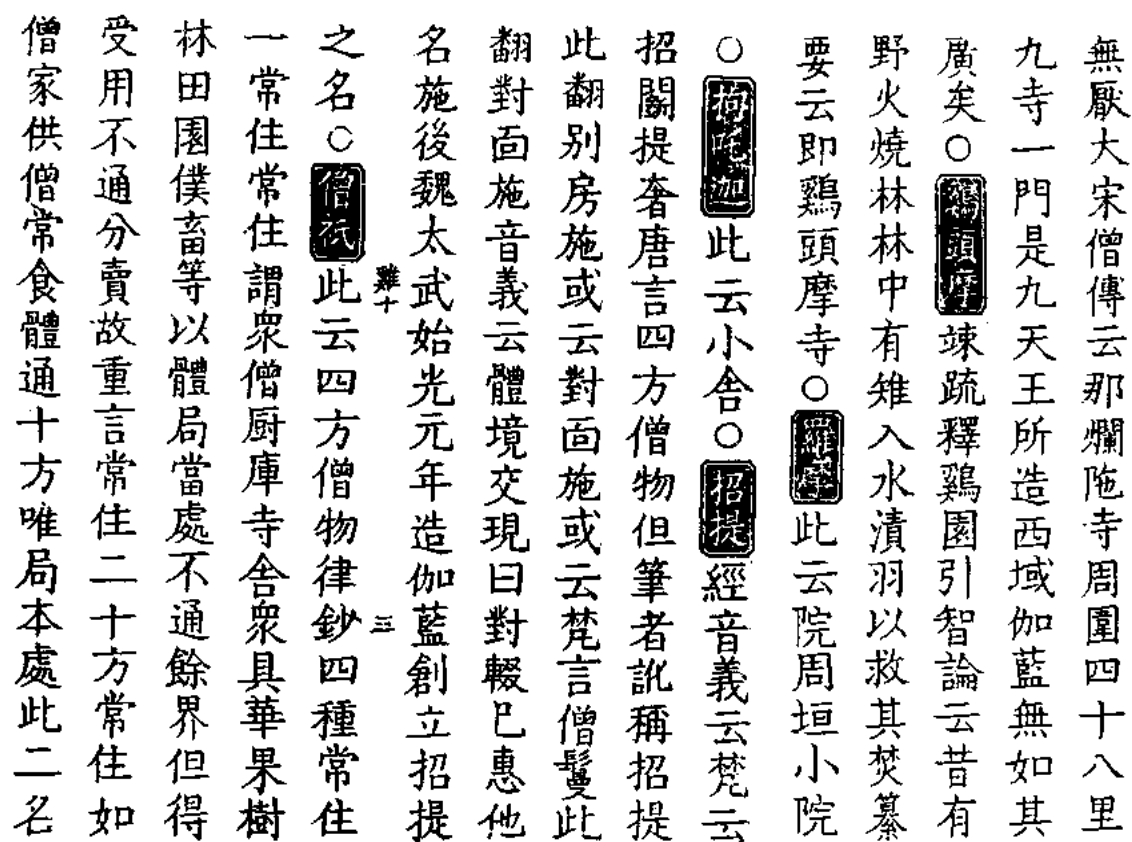 無厭大宋僧傳云那爛陁寺周圍四十八里
九寺一門是九天王所造西域伽藍無如其
廣矣○鷄頭摩竦疏釋鷄園引智論云昔有
野火燒林林中有雉入水漬羽以救其焚纂
要云即鷄頭摩寺○羅摩此云院周垣小院
○拘吒迦此云小舍○招提經音義云梵云
招鬭提奢唐言四方僧物但筆者訛稱招提
此翻別房施或云對面施或云梵言僧鬘此
翻對面施音義云體境交現曰對輟已惠他
名施後魏太武始光元年造伽藍創立招提
難十 三
之名○僧祇此云四方僧物律鈔四種常住
一常住常住謂衆僧厨庫寺舍衆具華果樹
林田園僕畜等以體局當處不通餘界但得
受用不通分賣故重言常住二十方常住如
僧家供僧常食體通十方唯局本處此二名